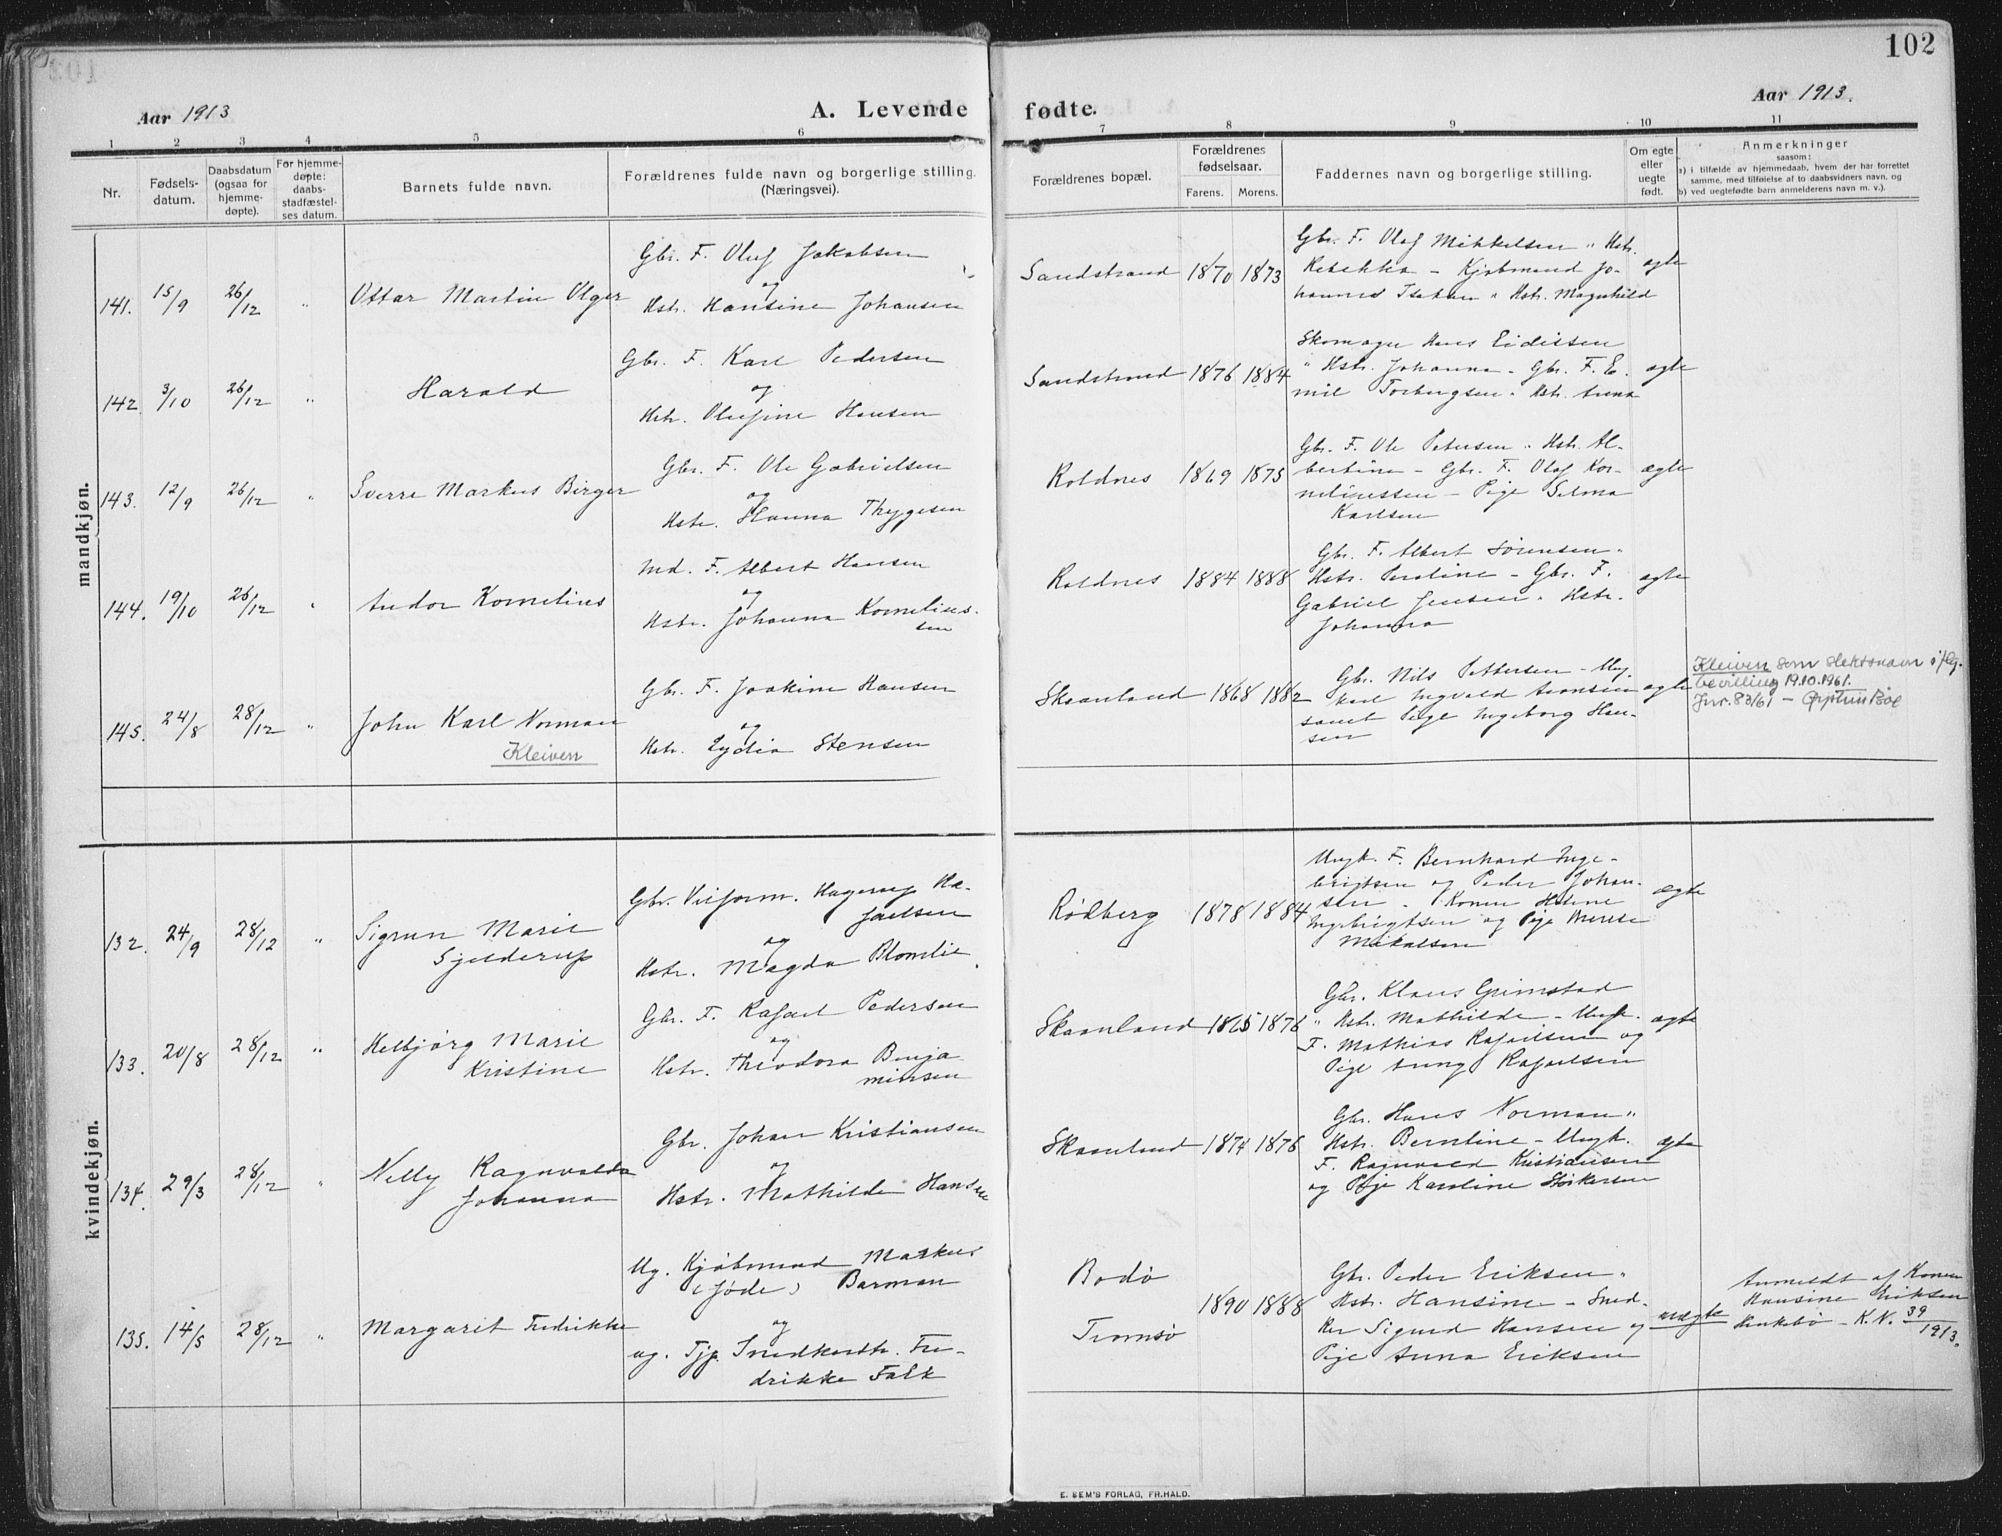 102
Aar 1913
A. Levende
fødte.
Aar 1913.
1 2 3 4 5 6 7 8 9 10 11
Nr.
Fødsels-
datum.
Daabsdatum
(ogsaa for
hjemme-
døpte).
For hjemme-
døpte:
daabs-
stadfæstel-
ses datum.
Barnets fulde navn.
Forældrenes fulde navn og borgerlige stilling.
(Næringsvei).
Forældrenes bopæl.
Forældrenes
fødselsaar.
Farens. Morens.
Faddernes navn og borgerlige stilling.
Om egte
eller
uegte
født.
Anmerkninger
saasom:
a) i tilfælde av hjemmedaab, hvem der har forrettet
samme, med tilføielse af to daabsvidners navn, og
b) ved uegtefødte barn anmelderens navn m. v.).
mandkjøn.
141. 15/9 26/12 " Ottar Martin Olger
Gbr. F. Oluf Jakobsen
og
Hstr. Hansine Johansen
Sandstrand 1870 1873
Gbr. F. Olaf Mikkelsen " Hstr.
Rebekka – Kjøbmand Jo-
hannes Isaksen " Hstr. Magnhild
ægte
142. 3/10 26/12 " Harald
Gbr. F. Karl Pedersen
og
Hstr. Olufine Hansen
Sandstrand 1876 1884
Skomager Hans Eidissen
" Hstr. Johanna – Gbr. F. E-
mil Torbergsen " Hstr. Anna
ægte
143. 12/9 26/12 " Sverre Markus Birger
Gbr. F. Ole Gabrielsen
og
Hstr. Hanna Thygesen
Roldnes 1869 1875
Gbr. F. Ole Petersen " Hstr. Al-
bertine – Gbr. F. Olaf Kor-
neliussen – Pige Selma
Karlsen
ægte
144. 19/10 26/12 " Andor Kornelius
Ind. F. Albert Hansen
og
Hstr. Johanna Kornelius-
sen
Roldnes 1884 1888
Gbr. F. Albert Sørensen "
Hstr. Peroline – Gbr. F.
Gabriel Jensen " Hstr.
Johanna
ægte
145. 24/8 28/12 " John Karl Norman
Kleiven
Gbr. F. Joakim Hansen
og
Hstr. Lydia Stensen
Skaanland 1868 1882
Gbr. Nils Pettersen – Ung-
karl Ingvald Aronsen
samt Pige Ingeborg Han-
sen
ægte
Kleiven som slektsnavn iflg.
bevilling 19.10.1961.
Jnr. 83/61 –
kvindekjøn.
132. 24/9 28/12 " Sigrun Marie
Gjelderup
Gbr. Vilform. Hagerup Ha-
faelsen
og
Hstr. Magda Blomlie
Rødberg 1878 1884
Ungk. F. Bernhard Inge-
brigtsen og Peder Johan-
sen – Konen Helene
Ingebrigtsen og Pige
Mikalsen
ægte
133. 20/8 28/12 " Helbjørg Marie
Kristine
Gbr. F. Rafael Pedersen
og
Hstr. Theodora Benja-
minsen
Skaanland 1865 1876
Gbr. Klaus Grimstad
" Hstr. Mathilde – Ungk.
F. Mathias Rafaelsen og
Pige Rafaelsen
ægte
134. 29/3 28/12 " Nelly Ragnvalda
Johanna
Gbr. Johan Kristiansen
og
Hstr. Mathilde Hansen
Skaanland 1874 1876
Gbr. Hans Norman "
Hstr. Berntine – Ungk.
F. Ragnvald Kristiansen
og Pige Karoline Størkersen
ægte
135. 14/5 28/12 " Margarit Fredrikke
Ug. Kjøbmand Markus
(Jøde) Barman
og
ug. Tjp. Fre-
drikke Falk
Bodø
Tromsø
1890 1888
Gbr. Peder Eriksen "
Hstr. Hansine – Sned-
ker Sigurd Hansen og
Pige Anna Eriksen
uægte
Anmeldt af Konen
Hansine Eriksen
– K. N. 39/1913.
E. SEM'S FORLAG, FR.HALD.